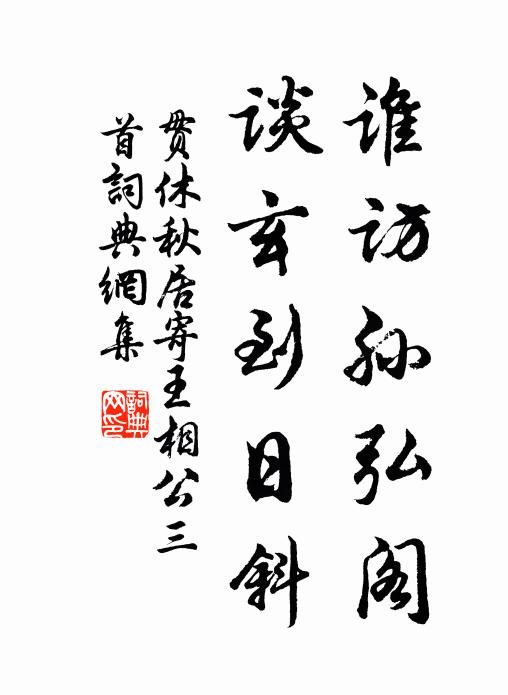 誰訪孙弘阁
談玄到日斜
贯休秋居寄王相公三
首詞典網集
詞典
网印